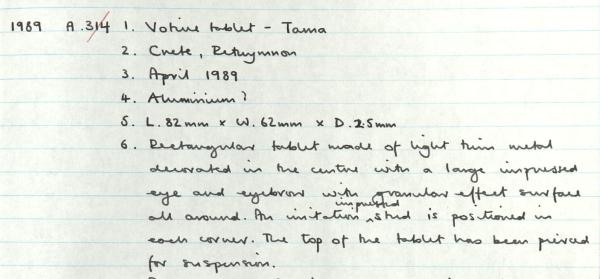 1989 A.314 1. Votive tablet - Tama
2. Crete, Rethymnon
3. April 1989
4. Aluminium?
5. L. 82mm x W. 62mm x D. 2.5mm
6. Rectangular tablet made of light thin metal
decorated in the centre with a large impressed
eye and eyebrow with granular effect surface
all around. An imitation impressed stud is positioned in
each corner. The top of the tablet has been pierced
for suspension.